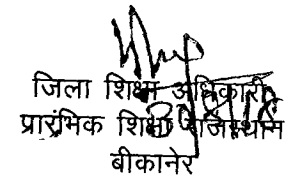 जिला शिक्षा अधिकारी
प्रारंभिक शिक्षा राजस्थान
बीकानेर